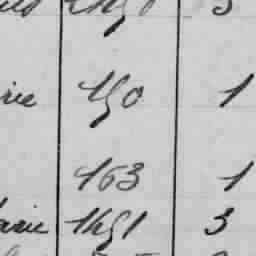 rie 150 1
163 1
arie 1451 3